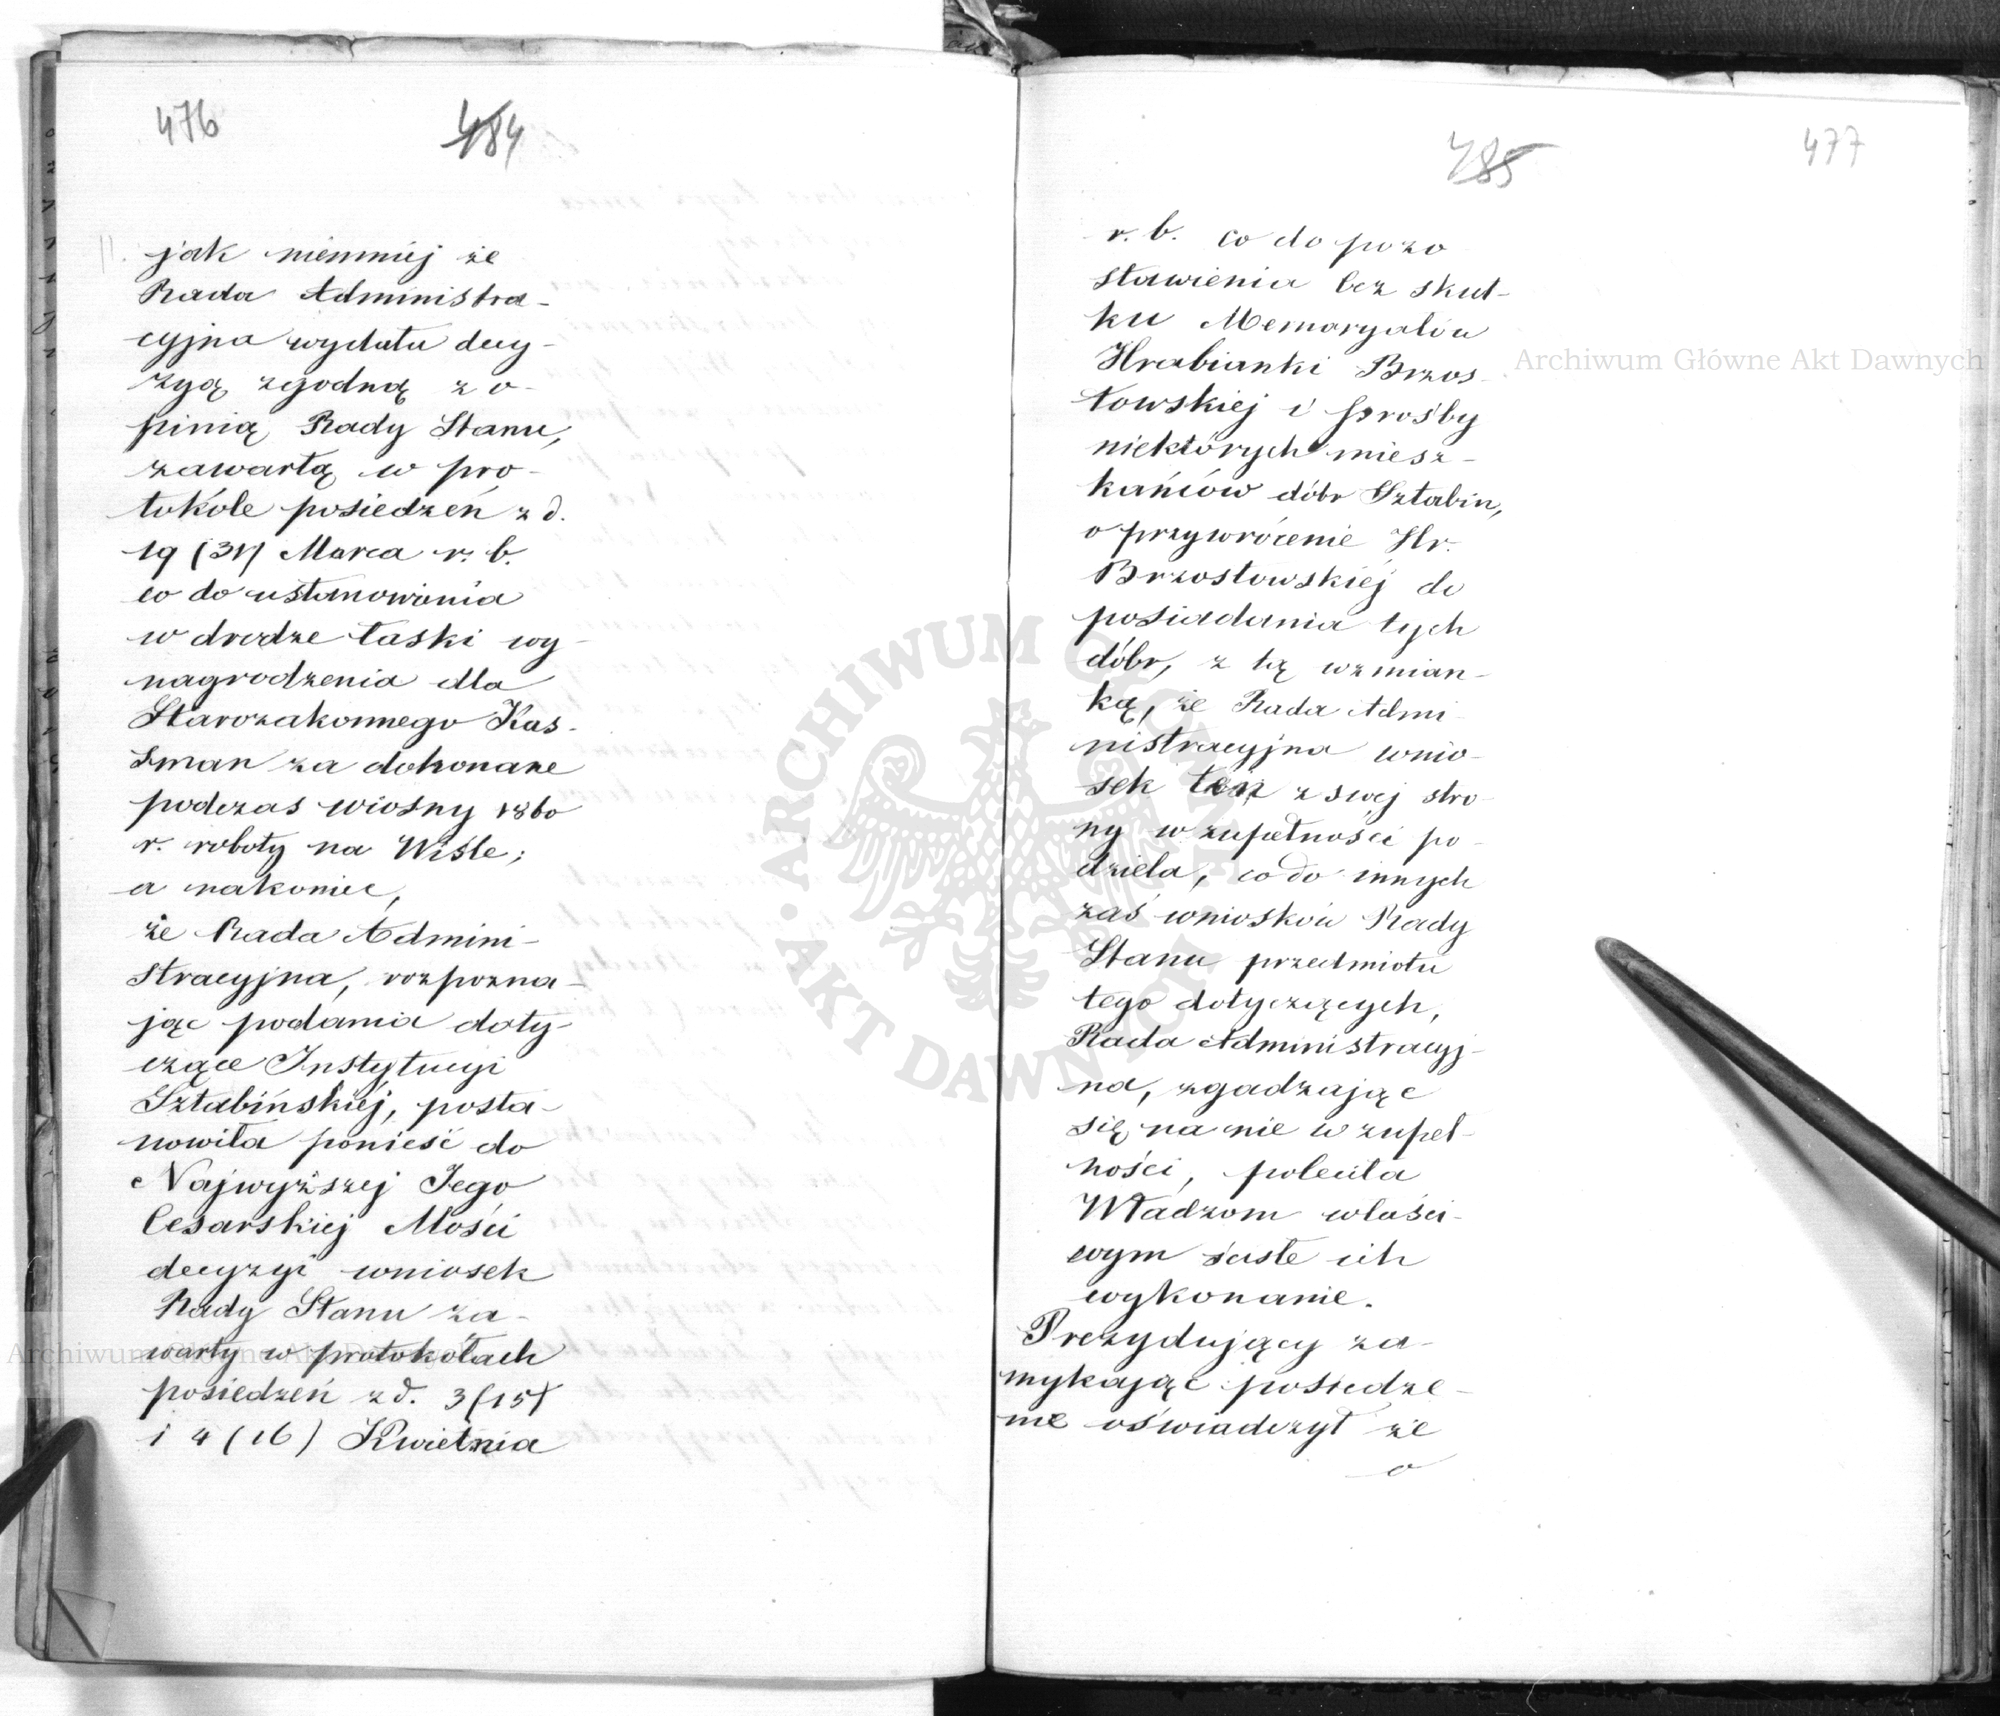 476
484
jak niemniéj że
Rada Administra-
cyjna wydała decy-
zyą zgodną z o-
pinią Rady Stanu,
zawartą w pro-
tokóle posiedzeń z d.
19 (31) Marca r. b.
co do ustanowienia
w drodze łaski wy-
nagrodzenia dla
Starozakonnego Kas-
sman za dokonane
podczas wiosny 1860
r. roboty na Wiśle;
a nakoniec,
że Rada Admini-
stracyjna, rozpozna-
jąc podania doty-
czące Instytucyi
Sztabińskiéj, posta-
nowiła ponieść do
Najwyższej Jego
Cesarskiej Mości
decyzyi wniosek
Rady Stanu za-
warty w protokółach
posiedzeń z d. 3 (15)
i 4 (16) Kwietnia
485
477
r. b. co do pozo
stawienia bez skut-
ku Memoryałów
Hrabianki Brzos-
towskiej i prośby
niektórych miesz-
kańców dóbr Sztabin,
o przywrócenie Hr.
Brzostowskiéj do
posiadania tych
dóbr, z tą wzmian-
ką, że Rada Admi-
nistracyjna wnio-
sek ten z swej stro-
ny w zupełności po-
dziela, co do innych
zaś wniosków Rady
Stanu przedmiotu
tego dotyczących,
Rada Administracyj-
na, zgadzając
się na nie w zupeł-
ności, poleciła
Władzom właści-
wym ścisłe ich
wykonanie.
Prezydujący za-
mykając posiedze-
nie oświadczył że
o
Archiwum Główne Akt Dawnych
Archiwum Główne Akt Dawnych
ARCHIWUM GŁÓWNE AKT DAWNYCH